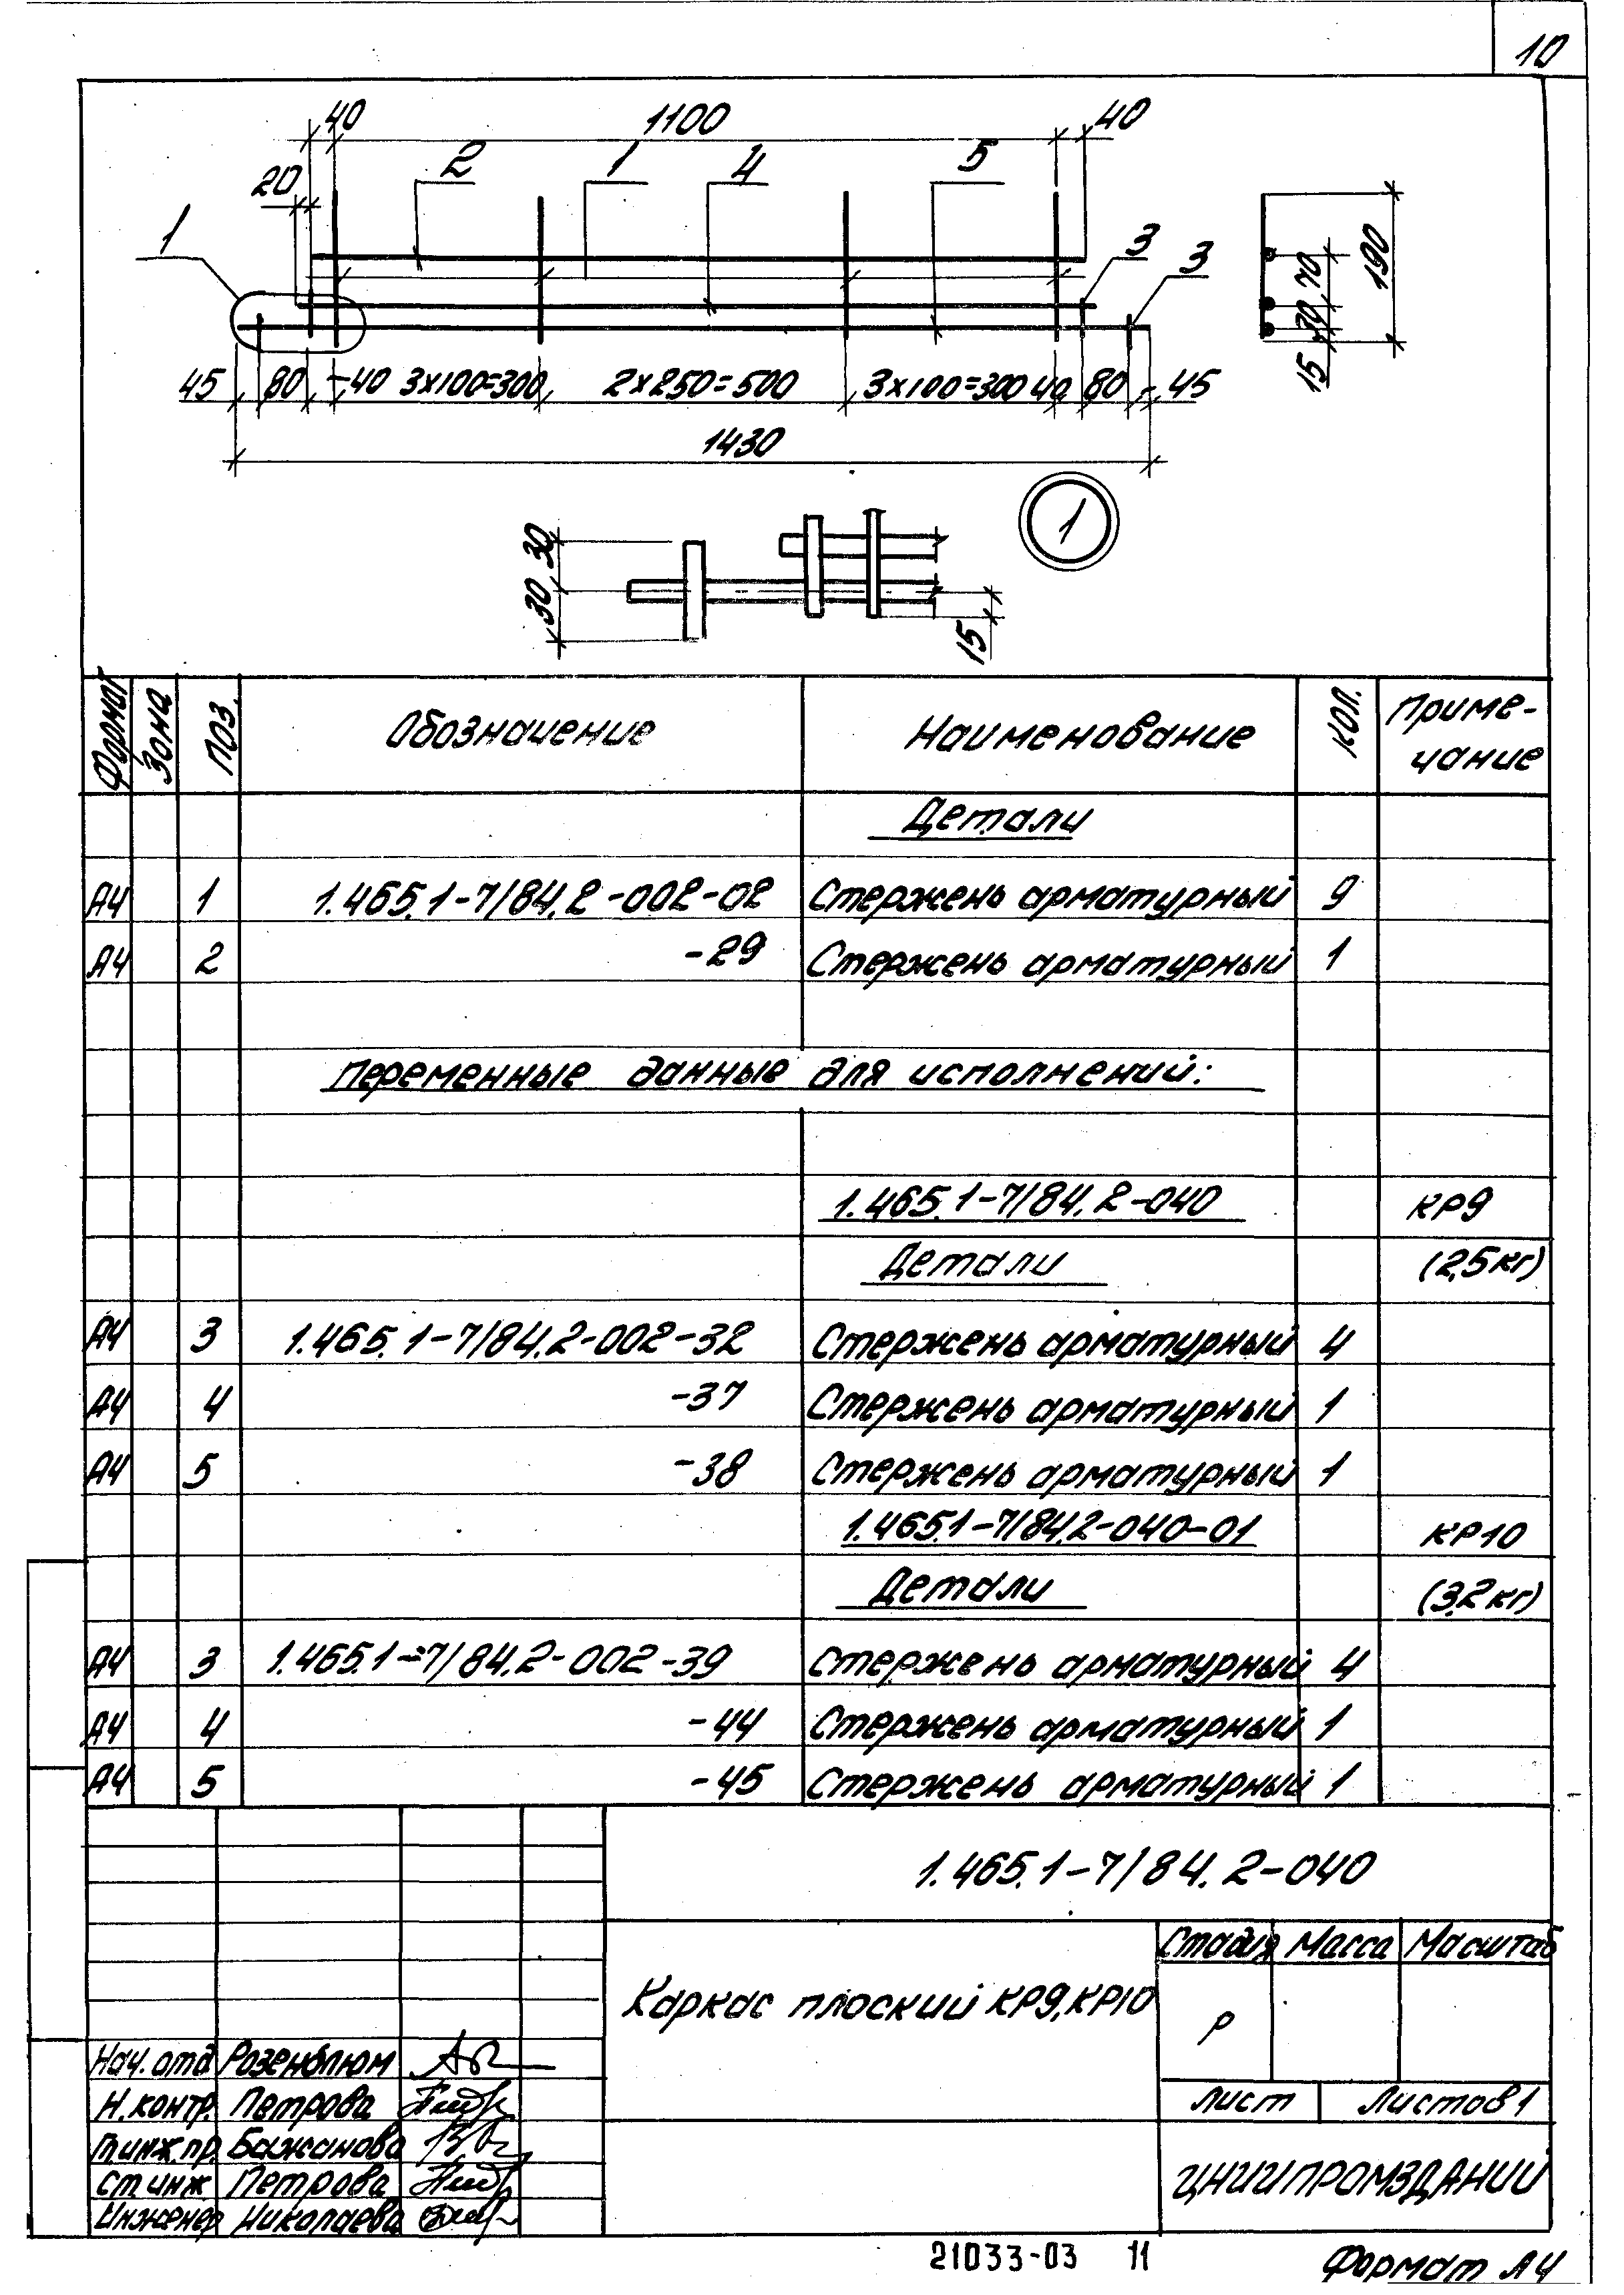 10
40 1100 40
20 2 1 4 5
1 3 3
70 190
30
15
45 80 40 3х100=300 2х250=500 3х100=300 40 80 45
1430
1
30 30
15
Формат Зона Поз. Обозначение Наименование Кол. Приме-
чание
Детали
А4 1 1.465.1-7/84.2-002-02 Стержень арматурный 9
А4 2 -29 Стержень арматурный 1
Переменные данные для исполнений:
1.465.1-7/84.2-040 КР9
Детали (2,5кг)
А4 3 1.465.1-7/84.2-002-32 Стержень арматурный 4
А4 4 -37 Стержень арматурный 1
А4 5 -38 Стержень арматурный 1
1.465.1-7/84.2-040-01 КР10
Детали (3,2кг)
А4 3 1.465.1-7/84.2-002-39 Стержень арматурный 4
А4 4 -44 Стержень арматурный 1
А4 5 -45 Стержень арматурный 1
1.465.1-7/84.2-040
Стадия Масса Масштаб
Каркас плоский КР9, КР10
Р
Нач. отд Розенблюм
Н.контр. Петрова Лист Листов 1
Гл.инж.пр. Бажанова
Ст.инж Петрова ЦНИИПРОМЗДАНИЙ
Инженер Николаева
21033-03 11
Формат А4